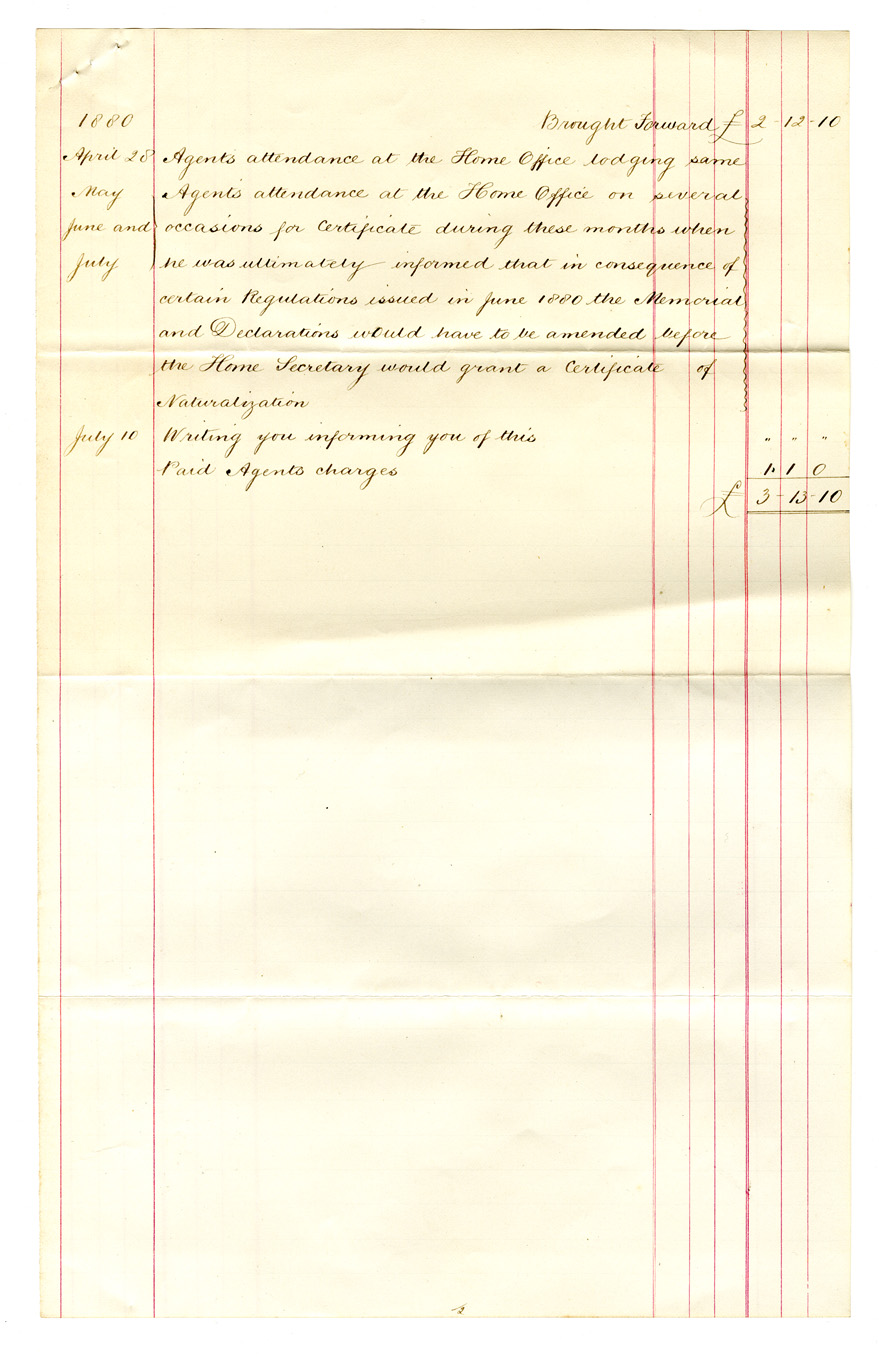 1880 Brought Forward £ 2-12-10
April 28 Agents attendance at the Home Office lodging same
May Agents attendance at the Home Office on several
June and occasions for Certificate during these months when
July he was ultimately informed that in consequence of
certain Regulations issued in June 1880 the Memorial
and Declarations would have to be amended before
the Home Secretary would grant a Certificate of
Naturalization
July 10 Writing you informing you of this " " "
Paid Agents charges 1. 1 0
£ 3-13-10